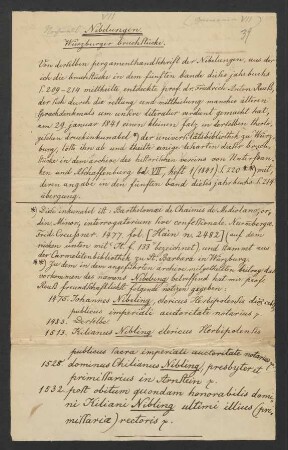 Nibelungen.
Würzburger bruchstücke.
Von derselben pergamenthandschrift der Nibelungen, aus der
ich die bruchstücke in dem fünften bande dieses jahrbuchs
s. 209-214 mittheilte, entdeckte prof. dr. Friedrich Anton Reuß,
der sich durch die rettung und mittheilung manches alten
Sprachdenkmals um unsere literatur verdient gemacht hat,
am 29. januar 1841 einen kleinen folg. in derselben theolo-
gischen druckincunabel *) der universitätsbibliothek zu Würz-
burg, löste ihn ab und theilte einige zeilen dieser bruch-
stücke in dem archive des historischen vereins von Unterfran-
ken und Aschaffenburg bd. VII, heft 1 (1841) s. 220 **) mit,
deren angabe in den fünften band dieses jahrbuchs s. 214
überging.
*) Diese inkunabel ist: Bartholomaei de Chaimis de Mediolano, or-
din. Minor., interrogatorium sive confessionale. Nurnbergae.
Frid. Creußner. 1477. fol. [Hain nr. 2482] (auf dem
rücken unten mit H. f. 133 bezeichnet) und stammt aus
der Carmelitenbibliothek zu St. Barbara in Würzburg.
**) Zu dem in den angeführten archive mitgetheilten beitrag des
vorkommens des namens Nibling betreffend hat mir profess.
Reuß freundschaftlichst folgende notizen gegeben:
1475. Johannes Nibling, clericus Herbipolensis dioecesis,
publicus imperiali auctoritate notarius.
1483. Derselbe.
1513. Kilianus Nibling clericus Herbipolensis
publicus sacra imperiali auctoritate notarius.
1528. dominus Chilianus Nibling, presbyter et
primissarius in Arnstein.
1532. post obitum quondam honorabilis domi-
ni Kiliani Nibling ultimi illius (pri-
missariae) rectoris.